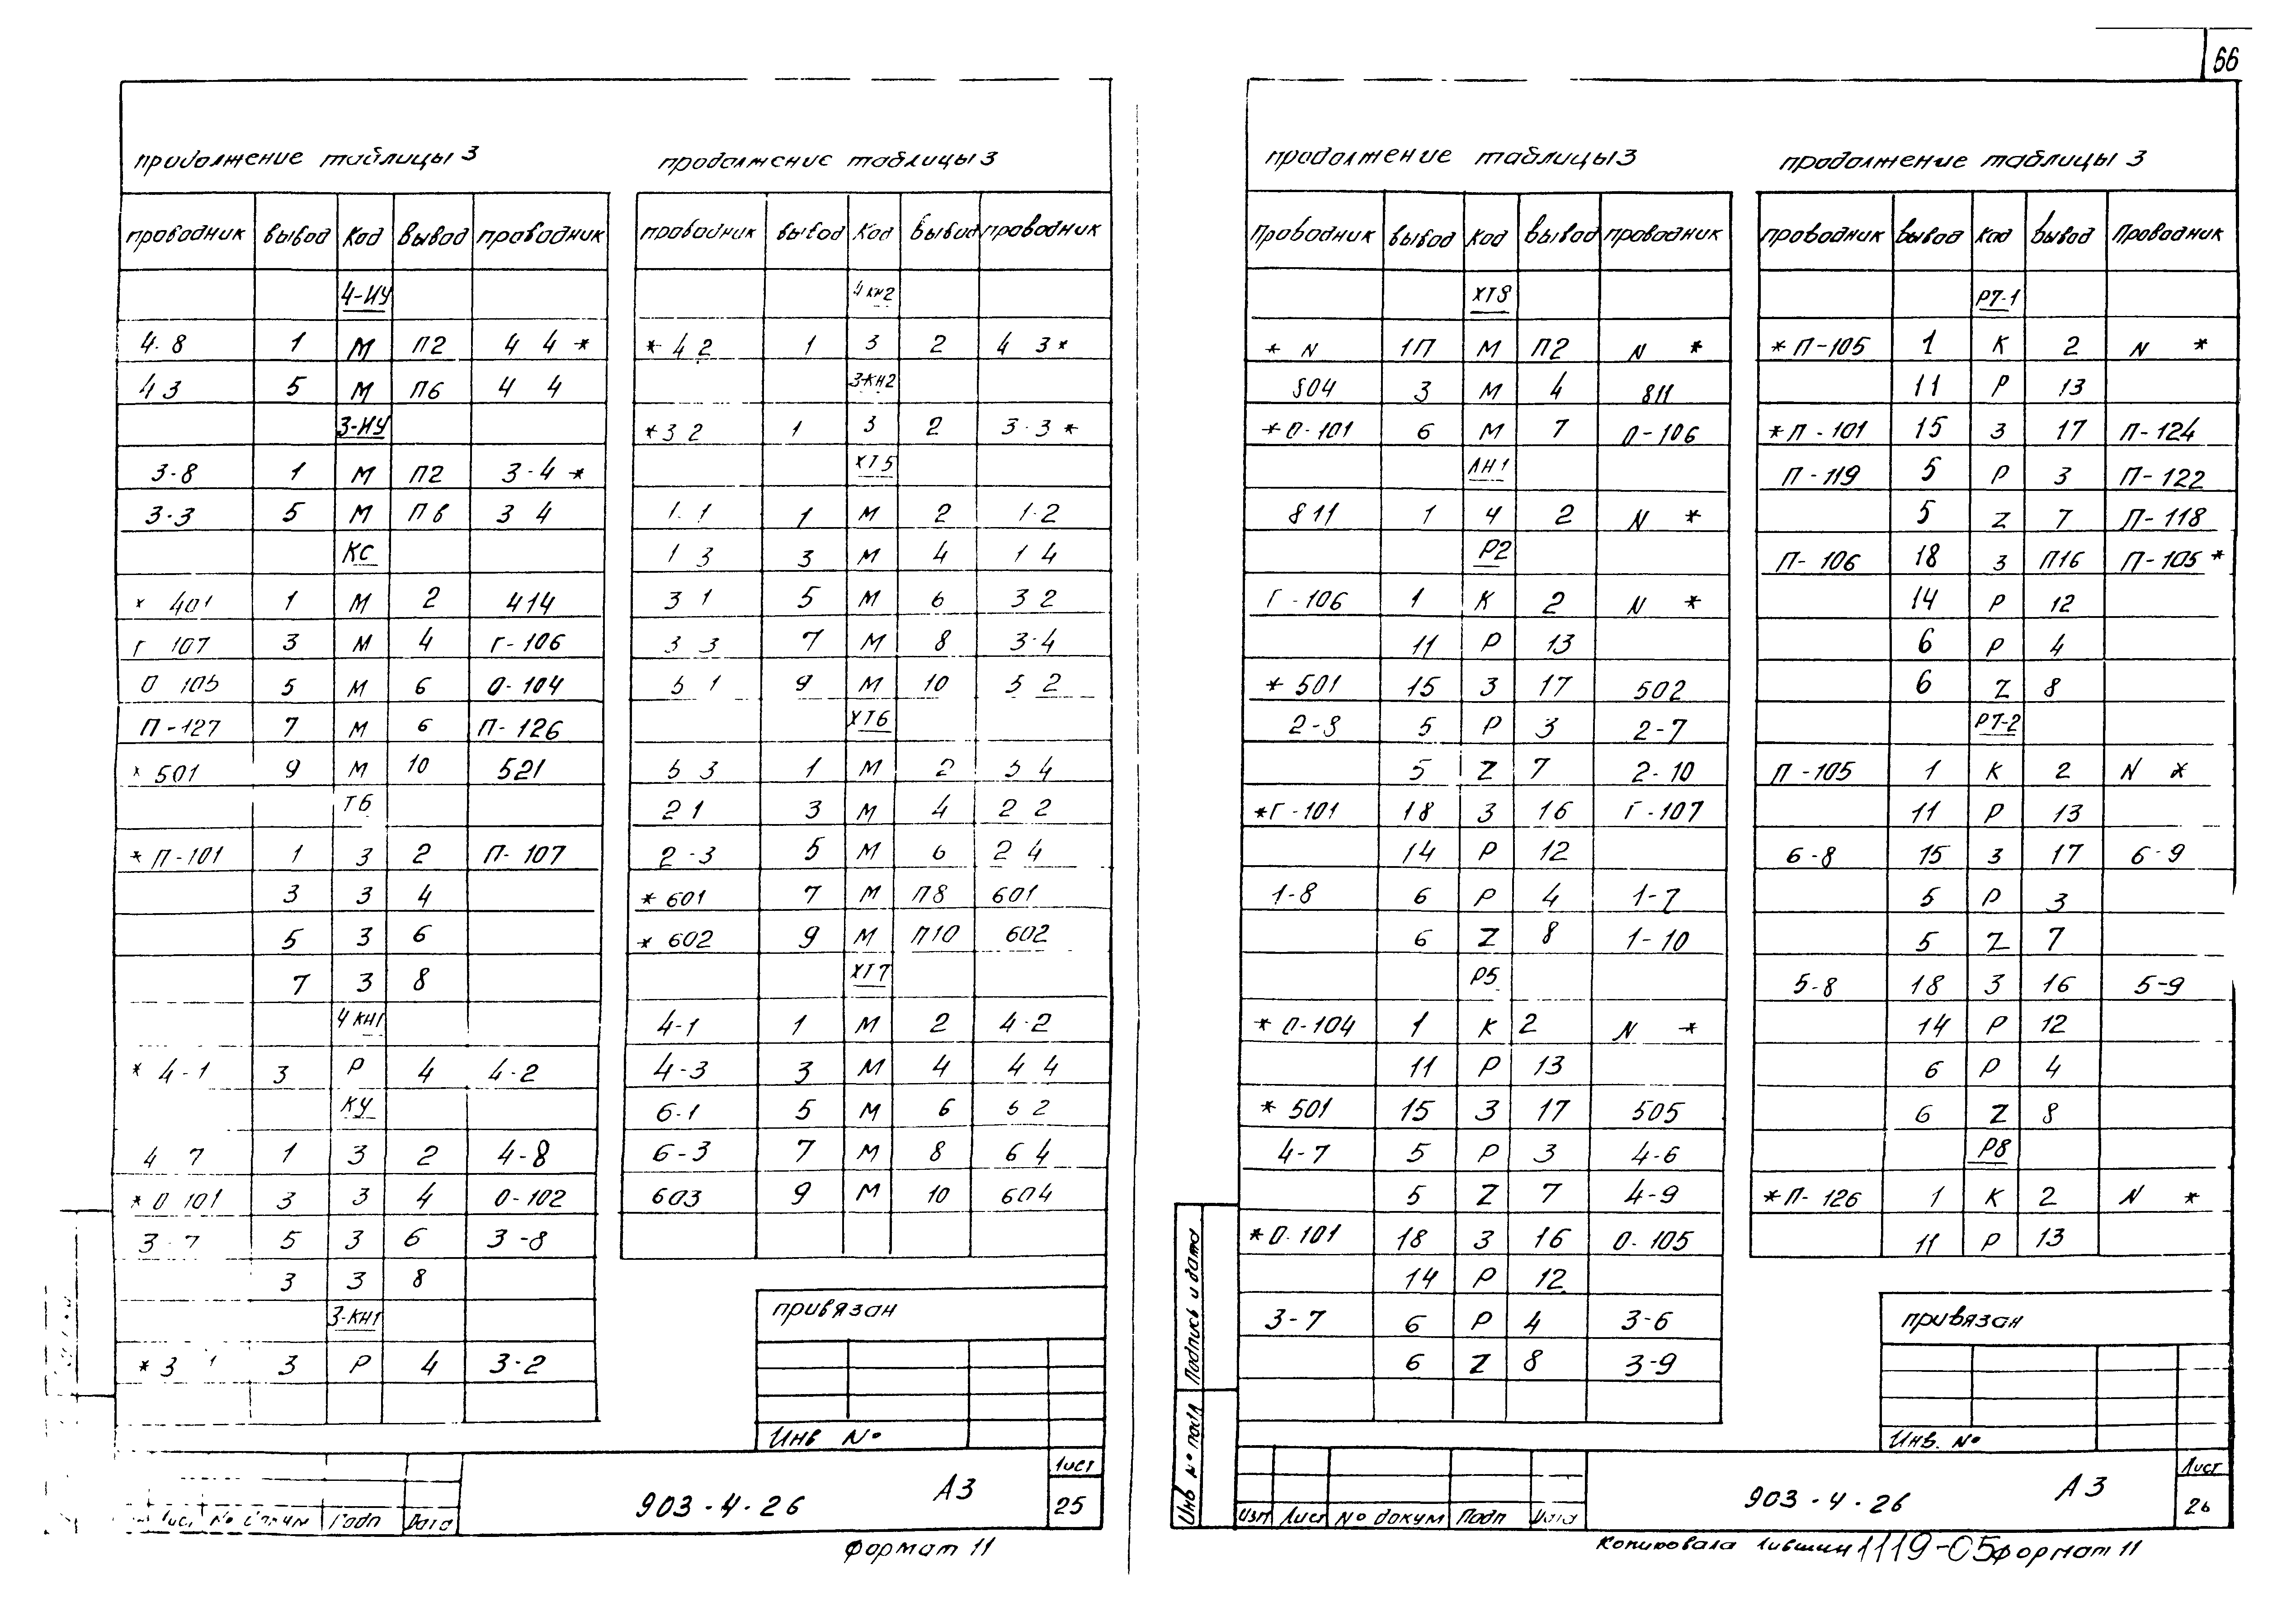 66
продолжение таблицы 3
проводник вывод код вывод проводник
4-ИУ
4-8 1 М П2 4 4 *
4 3 5 М П6 4 4
3-ИУ
3-8 1 М П2 3-4 *
3-3 5 М П6 3 4
КС
* 401 1 М 2 414
Г 107 3 М 4 Г-106
О 105 5 М 6 О-104
П-127 7 М 6 П-126
* 501 9 М 10 521
Т6
* П-101 1 З 2 П-107
3 З 4
5 З 6
7 З 8
4 КН1
* 4-1 3 Р 4 4-2
КУ
4 7 1 З 2 4-8
* О 101 3 З 4 О-102
3-7 5 З 6 3-8
3 З 8
3-КН1
* 3 1 3 Р 4 3-2
продолжение таблицы 3
проводник вывод код вывод проводник
4КН2
* 4 2 1 З 2 4 3 *
3-КН2
* 3 2 1 З 2 3-3 *
ХТ5
1.1 1 М 2 1-2
1 3 3 М 4 1 4
3 1 5 М 6 3 2
3 3 7 М 8 3-4
5 1 9 М 10 5 2
ХТ6
5 3 1 М 2 5 4
2 1 3 М 4 2 2
2-3 5 М 6 2 4
* 601 7 М П8 601
* 602 9 М П10 602
ХТ7
4-1 1 М 2 4-2
4-3 3 М 4 4 4
6-1 5 М 6 6 2
6-3 7 М 8 6 4
603 9 М 10 604
привязан
Инв №
903-4-26 А3
Лист
25
Лист № докум Подп Дата
Формат 11
продолжение таблицы 3
Проводник вывод код вывод проводник
ХТ8
* N 1П М П2 N *
804 3 М 4 811
* О-101 6 М 7 О-106
ЛН1
811 1 Ч 2 N *
Р2
Г-106 1 К 2 N *
11 Р 13
* 501 15 З 17 502
2-8 5 Р 3 2-7
5 Z 7 2-10
* Г-101 18 З 16 Г-107
14 Р 12
1-8 6 Р 4 1-7
6 Z 8 1-10
Р5
* О-104 1 К 2 N *
11 Р 13
* 501 15 З 17 505
4-7 5 Р 3 4-6
5 Z 7 4-9
* О-101 18 З 16 О-105
14 Р 12
3-7 6 Р 4 3-6
6 Z 8 3-9
продолжение таблицы 3
проводник вывод код вывод Проводник
Р7-1
* П-105 1 К 2 N *
11 Р 13
* П-101 15 З 17 П-124
П-119 5 Р 3 П-122
5 Z 7 П-118
П-106 18 З П16 П-105 *
14 Р 12
6 Р 4
6 Z 8
Р7-2
П-105 1 К 2 N *
11 Р 13
6-8 15 З 17 6-9
5 Р 3
5 Z 7
5-8 18 З 16 5-9
14 Р 12
6 Р 4
6 Z 8
Р8
* П-126 1 К 2 N *
11 Р 13
привязан
Инв. №
Инв № подл Подпись и дата
903-4-26 А3
Лист
26
Изм Лист № докум Подп Дата
Копировала 1119-05 формат 11